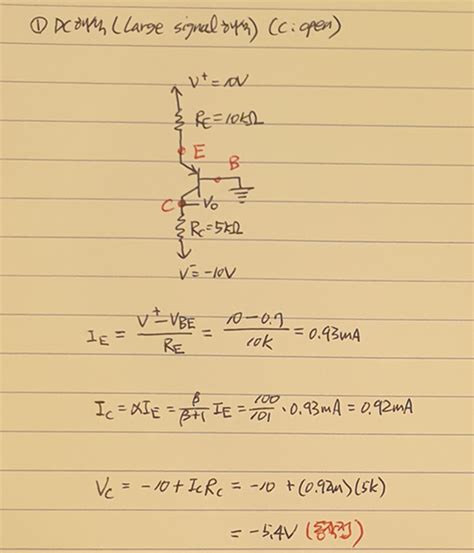 ① DC 해석 (Large signal 해석) (C: open)
V⁺=10V
R_E=10kΩ
E
B
C
V₀
R_C=5kΩ
V⁻=-10V
I_E = (V⁺-V_BE)/R_E = (10-0.7)/10k = 0.93mA
I_C = αI_E = β/(β+1) I_E = 100/101 · 0.93mA = 0.92mA
V_C = -10 + I_C R_C = -10 + (0.92m)(5k)
= -5.4V (동작점)